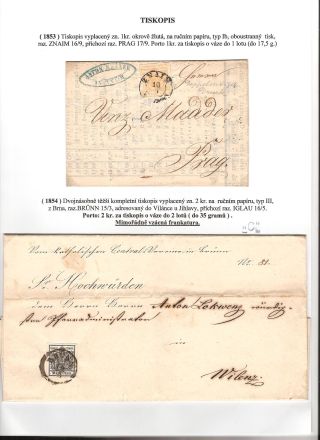 TISKOPIS
( 1853 ) Tiskopis vyplacený zn. 1kr. okrově žlutá, na ručním papíru, typ Ib, oboustranný tisk,
raz. ZNAIM 16/9, příchozí raz. PRAG 17/9. Porto 1kr. za tiskopis o váze do 1 lotu (do 17,5 g.)
ZNAIM
Herrn
Wenz Maader
Prag.
( 1854 ) Dvojnásobně těžší kompletní tiskopis vyplacený zn. 2 kr. na ručním papíru, typ III,
z Brna, raz.BRÜNN 15/3, adresovaný do Vílánce u Jihlavy, příchozí raz. IGLAU 16/5.
Porto: 2 kr. za tiskopis o váze do 2 lotů ( do 35 gramů ) .
Mimořádně vzácná frankatura.
Vom katholischen Central-Vereine in Brünn
Nr. 81.
Sr Hochwürden
dem Herrn Herrn Anton
Pfarradministrator
in
Wilenz